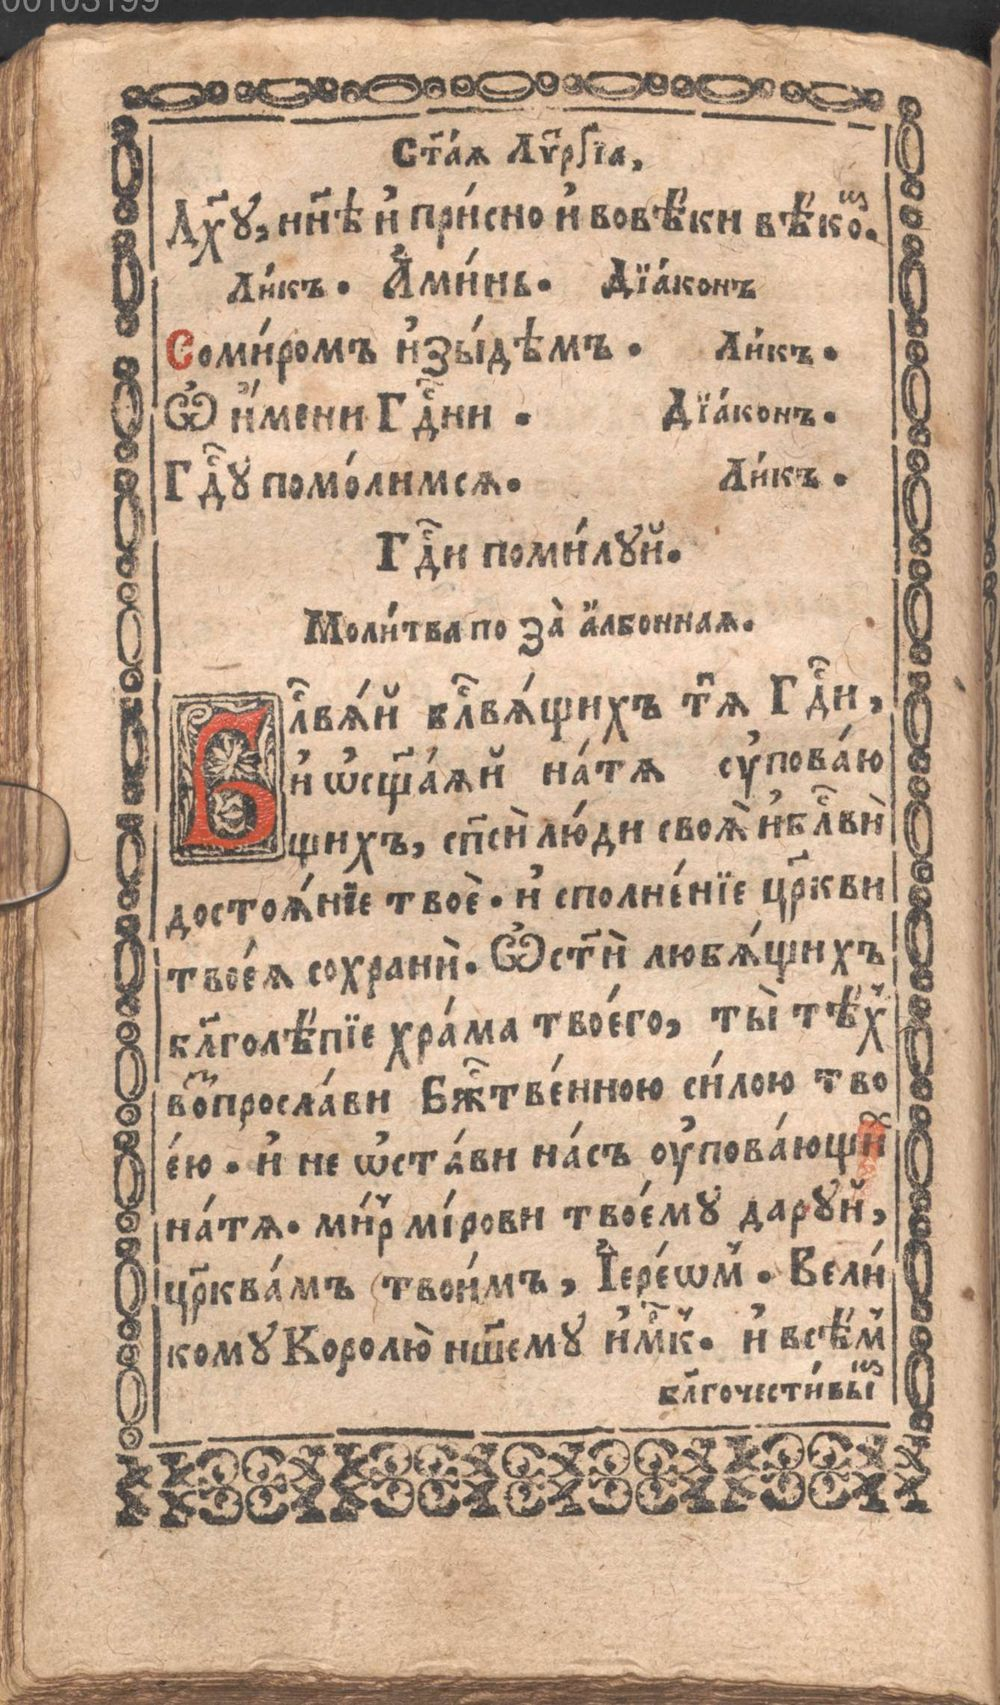 00103199
Ст҃а́я Лѵ҃рГїа,
Дх҃ꙋ, нн҃ѣ и҆ при́сно и҆ вовѣ́ки вѣкѡ́.
Ли́къ. А҆ми́нь. Дїа́конъ
Соми́ромъ и҆зы́дѣмъ. Ли́къ.
Ѽ и҆́мени Гд҇ни. Дїа́конъ.
Гд҇ꙋ помо́лимсѧ. Ли́къ.
Гд҇и поми́лꙋй.
Моли́тва по за̀ а҆лбоннаѧ.
Бл҇вѧ́й бл҇вѧ́щихъ тѧ̀ Гд҇и,
и҆ ѡ҆сщ҃а́ѧй на́тѧ ᲂу҆пова́ю
щихъ, сп҃сѝ лю́ди своѧ̀ и҆бл҇вѝ
достоѧ́нїе твоѐ. и҆ сполне́нїе цр҃кви
твоеѧ̀ сохранѝ. Ѽст҃ѝ любѧ́щихъ
бл҃голѣ́пїе хра́ма твоего̀, ты̀ тѣ́х
вопросла́ви Бж҇тве́нною си́лою тво
е́ю. и҆ не ѡ҆ста́ви на́съ ᲂу҆пова́ющи
на́тѧ. ми́р мі́рови твоемꙋ̀ дарꙋ́й,
цр҃ква́мъ твои́мъ, І҆ере́ѡм. Вели́
комꙋ Королю̀ нш҃емꙋ и҆м҃к. и҆ всѣ́м
бл҃гочести́вы